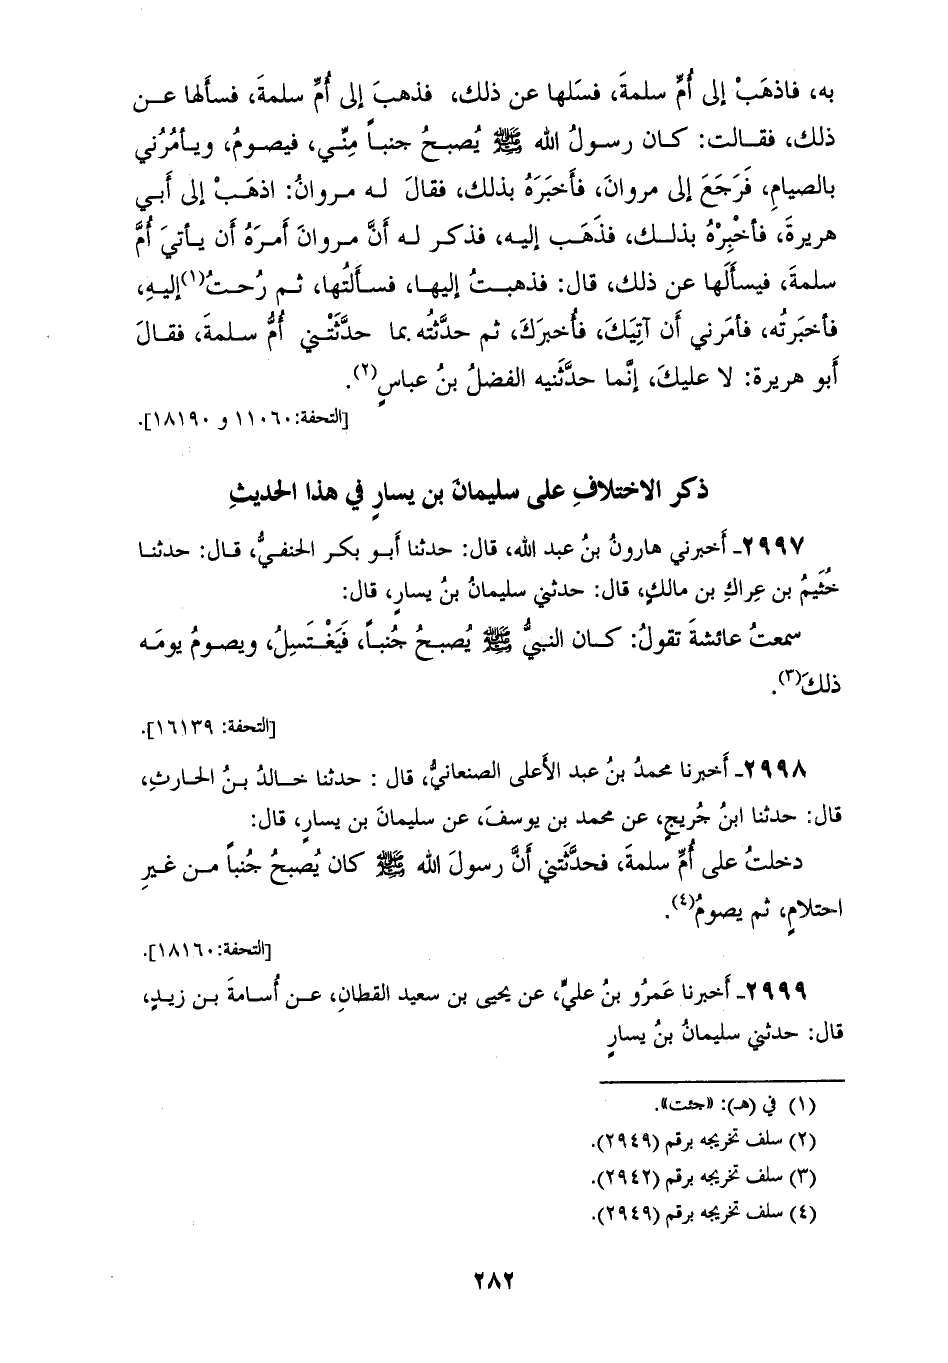 به، فاذهَبْ إلى أُمِّ سلمةَ، فسَلها عن ذلك، فذهبَ إلى أُمِّ سلمةَ، فسألَها عن
ذلك، فقالت: كان رسولُ الله ﷺ يُصبحُ جنباً مِنِّي، فيصومُ، ويأمُرُني
بالصيامِ، فَرَجَعَ إلى مروانَ، فأخبَرَهُ بذلك، فقالَ له مروانُ: اذهَبْ إلى أبي
هريرةَ، فأخْبِرْهُ بذلك، فذهَب إليه، فذكر له أنَّ مروانَ أمرَهُ أن يأتيَ أُمَّ
سلمةَ، فيسألَها عن ذلك، قال: فذهبتُ إليها، فسألتُها، ثم رُحتُ(١) إليهِ،
فأخبَرتُه، فأمَرني أن آتِيَكَ، فأُخبرَكَ، ثم حدَّثتُه بما حدَّثَتْني أُمُّ سلمةَ، فقالَ
أبو هريرة: لا عليكَ، إنَّما حدَّثَنيه الفضلُ بنُ عباسٍ(٢).
[التحفة: ١١٠٦٠ و ١٨١٩٠].
ذكر الاختلافِ على سليمانَ بن يسارٍ في هذا الحديثِ
٢٩٩٧- أخبرني هارونُ بنُ عبد الله، قال: حدثنا أبو بكر الحنفيُّ، قال: حدثنا
خُثَيمُ بن عِراكِ بن مالكٍ، قال: حدثني سليمانُ بنُ يسارٍ، قال:
سمعتُ عائشةَ تقولُ: كان النبيُّ ﷺ يُصبحُ جُنباً، فَيَغْتَسِلُ، ويصومُ يومَه
ذلكَ(٣).
[التحفة: ١٦١٣٩].
٢٩٩٨- أخبرنا محمدُ بنُ عبد الأعلى الصنعانيُّ، قال : حدثنا خالدُ بنُ الحارثِ،
قال: حدثنا ابنُ جُريجٍ، عن محمد بن يوسفَ، عن سليمانَ بن يسارٍ، قال:
دخلتُ على أُمِّ سلمةَ، فحدَّثَتني أنَّ رسولَ الله ﷺ كان يُصبحُ جُنباً من غيرِ
احتلامٍ، ثم يصومُ(٤).
[التحفة: ١٨١٦٠].
٢٩٩٩- أخبرنا عَمرُو بنُ عليٍّ، عن يحيى بن سعيد القطانِ، عن أُسامةَ بن زيدٍ،
قال: حدثني سليمانُ بنُ يسارٍ
(١) في (هـ): «جئت».
(٢) سلف تخريجه برقم (٢٩٤٩).
(٣) سلف تخريجه برقم (٢٩٤٢).
(٤) سلف تخريجه برقم (٢٩٤٩).
٢٨٢